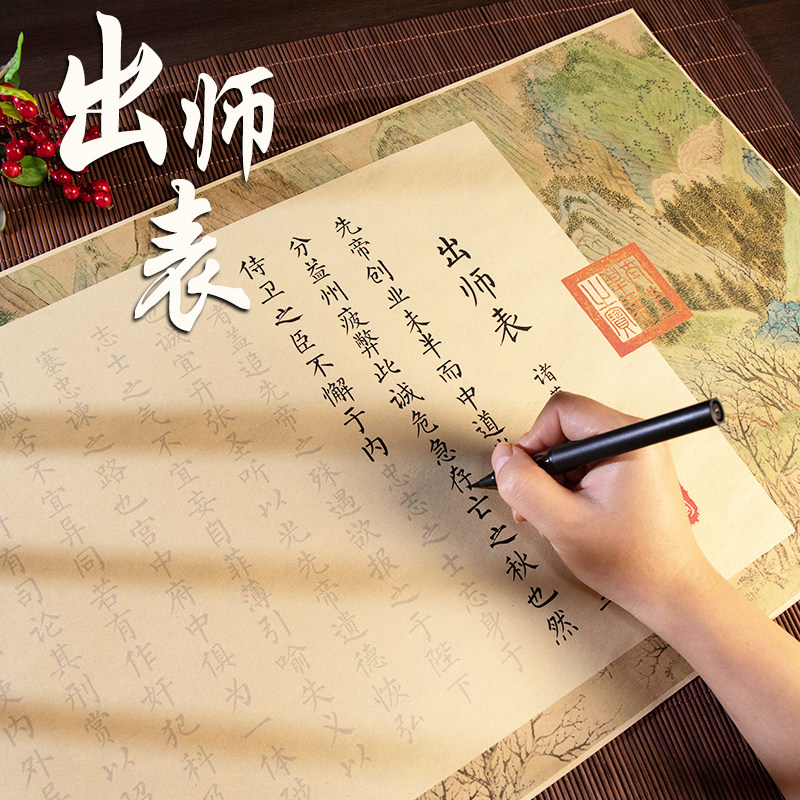 出师表
出师表
诸
先帝创业未半而中道
分益州疲弊此诚危急存亡之秋也然
侍卫之臣不懈于内忠志之士忘身于
者盖追先帝之殊遇欲报之于陛下
也诚宜开张圣听以光先帝遗德恢弘
志士之气不宜妄自菲薄引喻失义以
塞忠谏之路也宫中府中俱为一体陟
臧否不宜异同若有作奸犯科
有司论其刑赏以昭
内外异